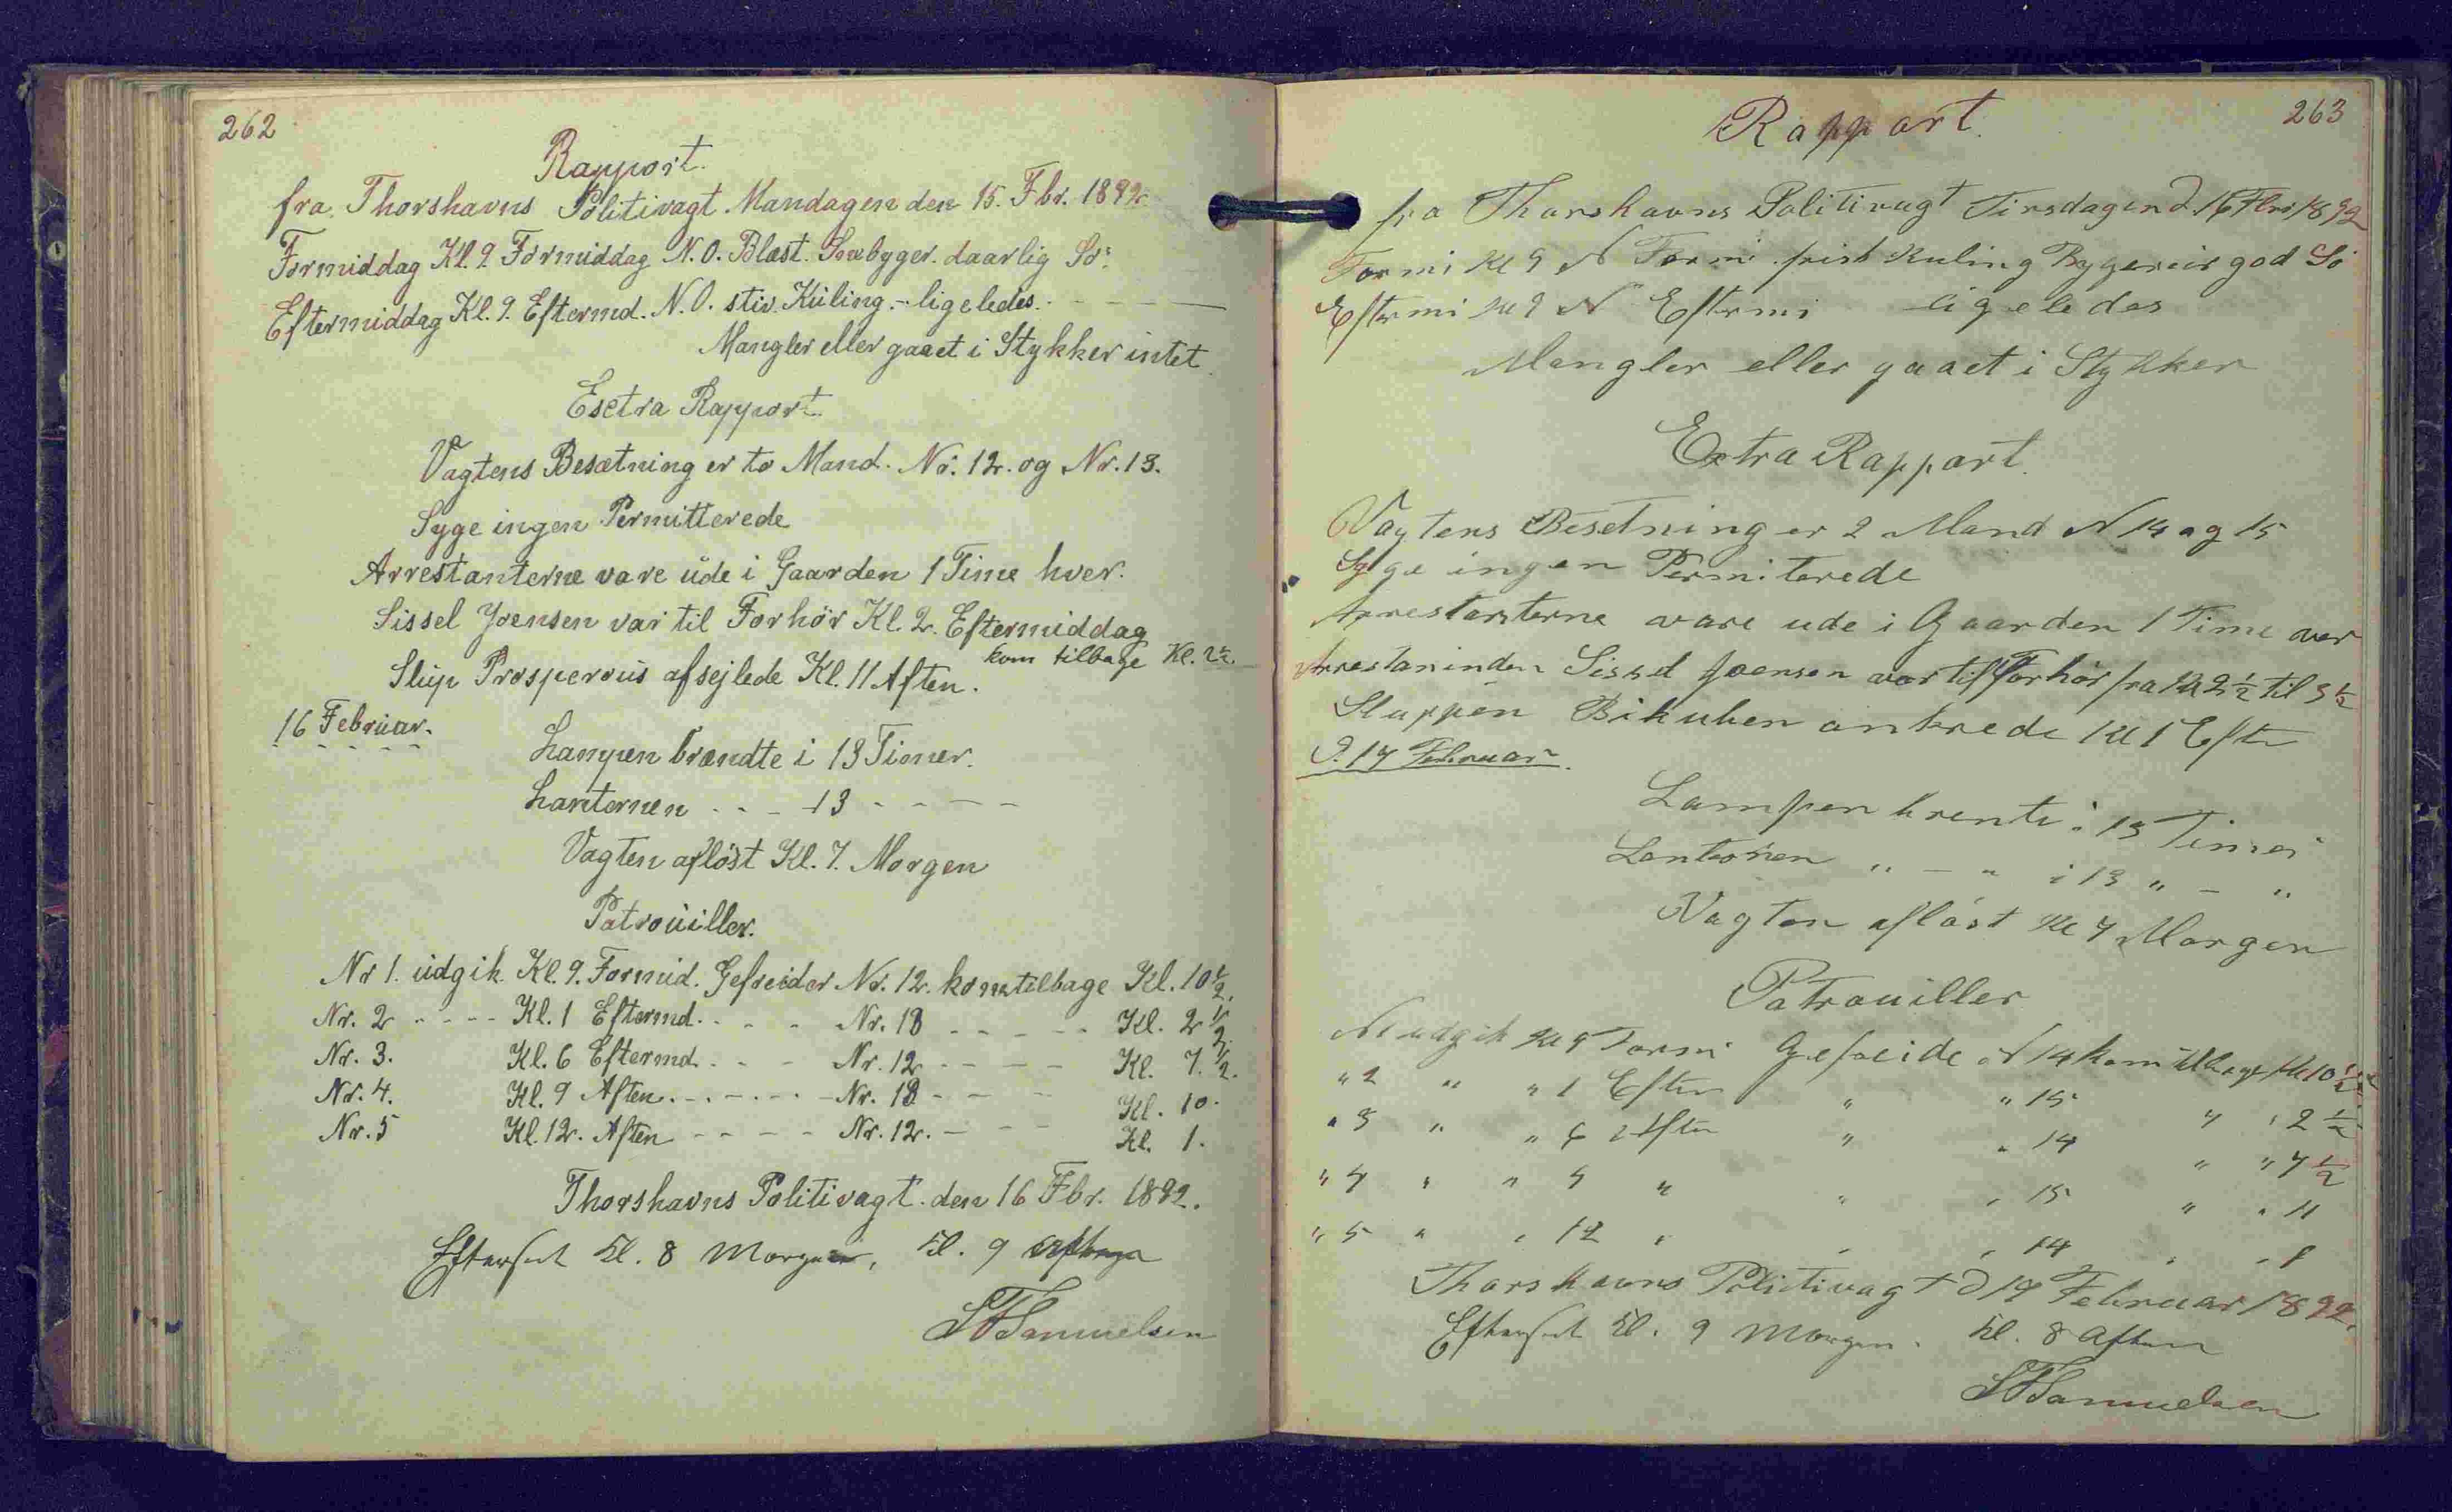 262
Rapport.
fra Thorshavns Politivagt Mandagen den 15. Fbr. 1892.
Formiddag Kl. 9. Formiddag N. O. Blæst. Snebyger. daarlig Sö.
Eftermiddag Kl. 9. Eftermd. N. O. stiv. Kuling. - ligeledes. - - - -
Mangler eller gaaet i Stykker intet.
Esctra Rapport.
Vagtens Besætning er to Mand. Nr. 12. og Nr. 13.
Syge ingen Permitterede
Arrestanterne vare ude i Gaarden 1 Time hver.
Sissel Joensen var til Forhör Kl. 2. Eftermiddag
kom tilbage Kl. 2½.
Slup Prosperous afsejlede Kl. 11 Aften.
16 Februar.
Lampen brændte i 13 Timer.
Lanternen - - - 13 - - - -
Vagten aflöst Kl. 7. Morgen
Patrouiller.
Nr 1. udgik Kl. 9. Formid. Gefreider Nr. 12. kom tilbage Kl. 10½.
Nr. 2 - - - - Kl. 1 Eftermd. - - - Nr. 13 - - - - - Kl. 2½.
Nr. 3. Kl. 6 Eftermd. - - - Nr. 12 - - - - Kl. 7½.
Nr. 4. Kl. 9 Aften. - - - - - - Nr. 13 - - - Kl. 10.
Nr. 5 Kl. 12. Aften - - - - - Nr. 12. - - - Kl. 1.
Thorshavns Politivagt. den 16 Fbr. 1892.
Efterset Kl. 8 Morgen, Kl. 9 Aften
SFSamuelsen
263
Rapport.
fra Thorshavns Politivagt Tirsdagen d. 16 Fbr 1892
Formi Kl 9 N Formi frisk Kuling Bygeveir god Sö
Eftermi Kl 9 N Eftermi ligeledes
Mangler eller gaaet i Stykker
Extra Rapport.
Vagtens Besetning er 2 Mand N 14 og 15
Syge ingen Permiterede
Arrestanterne vare ude i Gaarden 1 Time over
Arrestaninden Sissel Joensen var til Forhör fra Kl 2½ til 3½
Sluppen Bikuben ankrede Kl 1 Efter
D. 17 Februar.
Lampen brente i 13 Timer
Lanternen " - " i 13 " - "
Vagten aflöst Kl 7 Morgen
Patrouiller
N1 udgik Kl 9 Formi Gefreide N 14 kom tilbage Kl 10½
" 2 " " 1 Efter " " 15 " " 2½
" 3 " " 6 Efter " " 14 " " 7½
" 4 " " 9 " " " 15 " " 11
" 5 " " 12 " " " 14 " " 1
Thorshavns Politivagt d 17 Februar 1892.
Efterset Kl. 9 Morgen. Kl. 8 Aften
SFSamuelsen